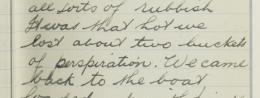 all sorts of rubbish
It was that hot we
lost about two buckets
of perspiration. We came
back to the boat